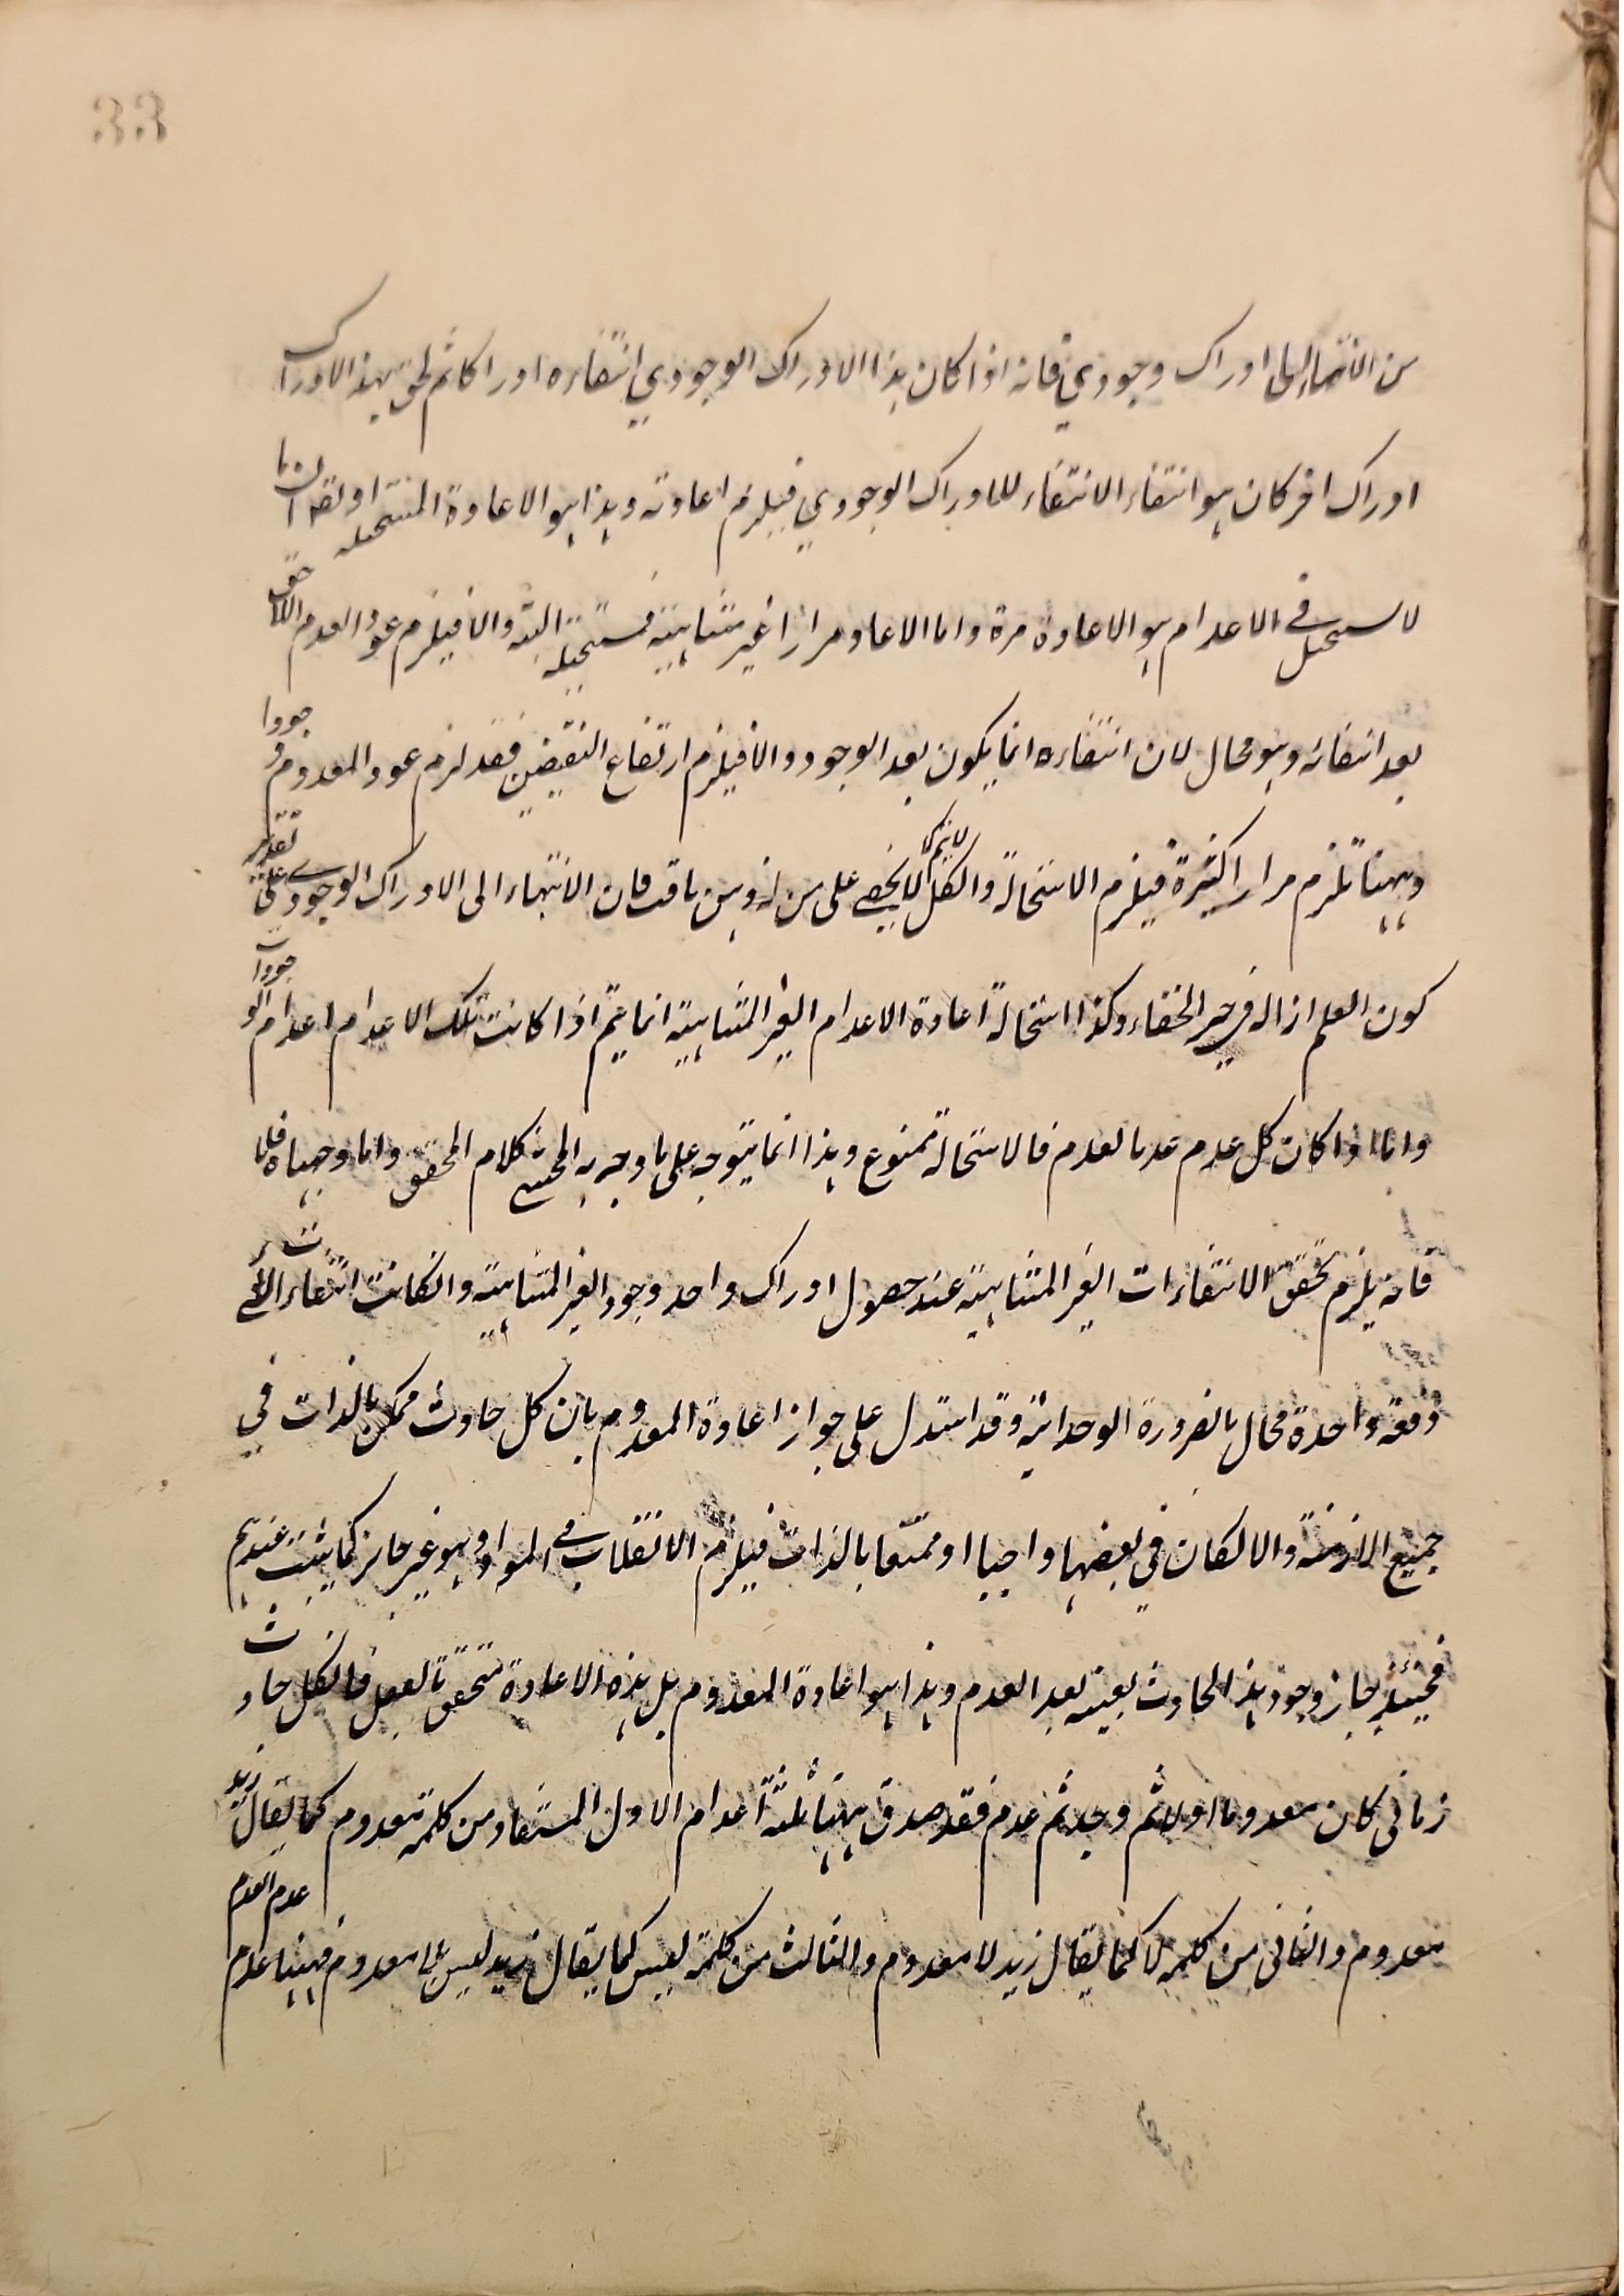 33
من الانتهاء الى ادراك وجودي فانه اذا كان هذا الادراك الوجودي انتفاءه ادراكا ثم لحق بهذا الادراك
ادراك اخر كان هو انتفاء الانتفاء للادراك الوجودي فيلزم اعادته وهذا هو الاعادة المستحيلة او نقول ان ما
لا يستحيل في الاعدام هو الاعادة مرة واما الاعادة مرارا غير متناهية فمستحيلة البتة والا فيلزم عود العدم اللاحق
بعد انتفائه وهو محال لان انتفاءه انما يكون بعد الوجود والا فيلزم ارتفاع النقيضين فقد لزم عود المعدوم وجودا
وههنا تلزم مرارا كثيرة فيلزم الاستحالة والكل لا يتم كما لا يخفى على من له ذهن ثاقب فان الانتهاء الى الادراك الوجودي على تقدير
كون العلم ازالة في حيز الخفاء وكذا استحالة اعادة الاعدام الغير المتناهية انما يتم اذا كانت تلك الاعدام اعدام الوجودات
واما اذا كان كل عدم عدما لعدم فالاستحالة ممنوع وهذا انما يتوجه على ما وجه به المحشي كلام المحقق واما وجهناه فلا
فانه يلزم تحقق الانتفاءات الغير المتناهية عند حصول ادراك واحد وجود الغير المتناهية وان كانت انتفاء
دفعة واحدة محال بالضرورة الوحدانية وقد استدل على جواز اعادة المعدوم بان كل حادث ممكن بالذات في
جميع الازمنة والا لكان في بعضها واجبا او ممتنعا بالذات فيلزم الانقلاب في المواد وهو غير جائز كما يثبت عندهم
فحينئذ جاز وجود هذا الحادث بعينه بعد العدم وهذا هو اعادة المعدوم بل هذه الاعادة متحقق بالفعل فالكل حادث
زماني كان معدوما اولا ثم وجد ثم عدم فقد صدق ههنا ثلثة اعدام الاول المستفاد من كلمة معدوم كما يقال زيد
معدوم والثاني من كلمة لا كما يقال زيد لا معدوم والثالث من كلمة ليس كما يقال زيد ليس بلا معدوم فههنا عدم عدم العدم